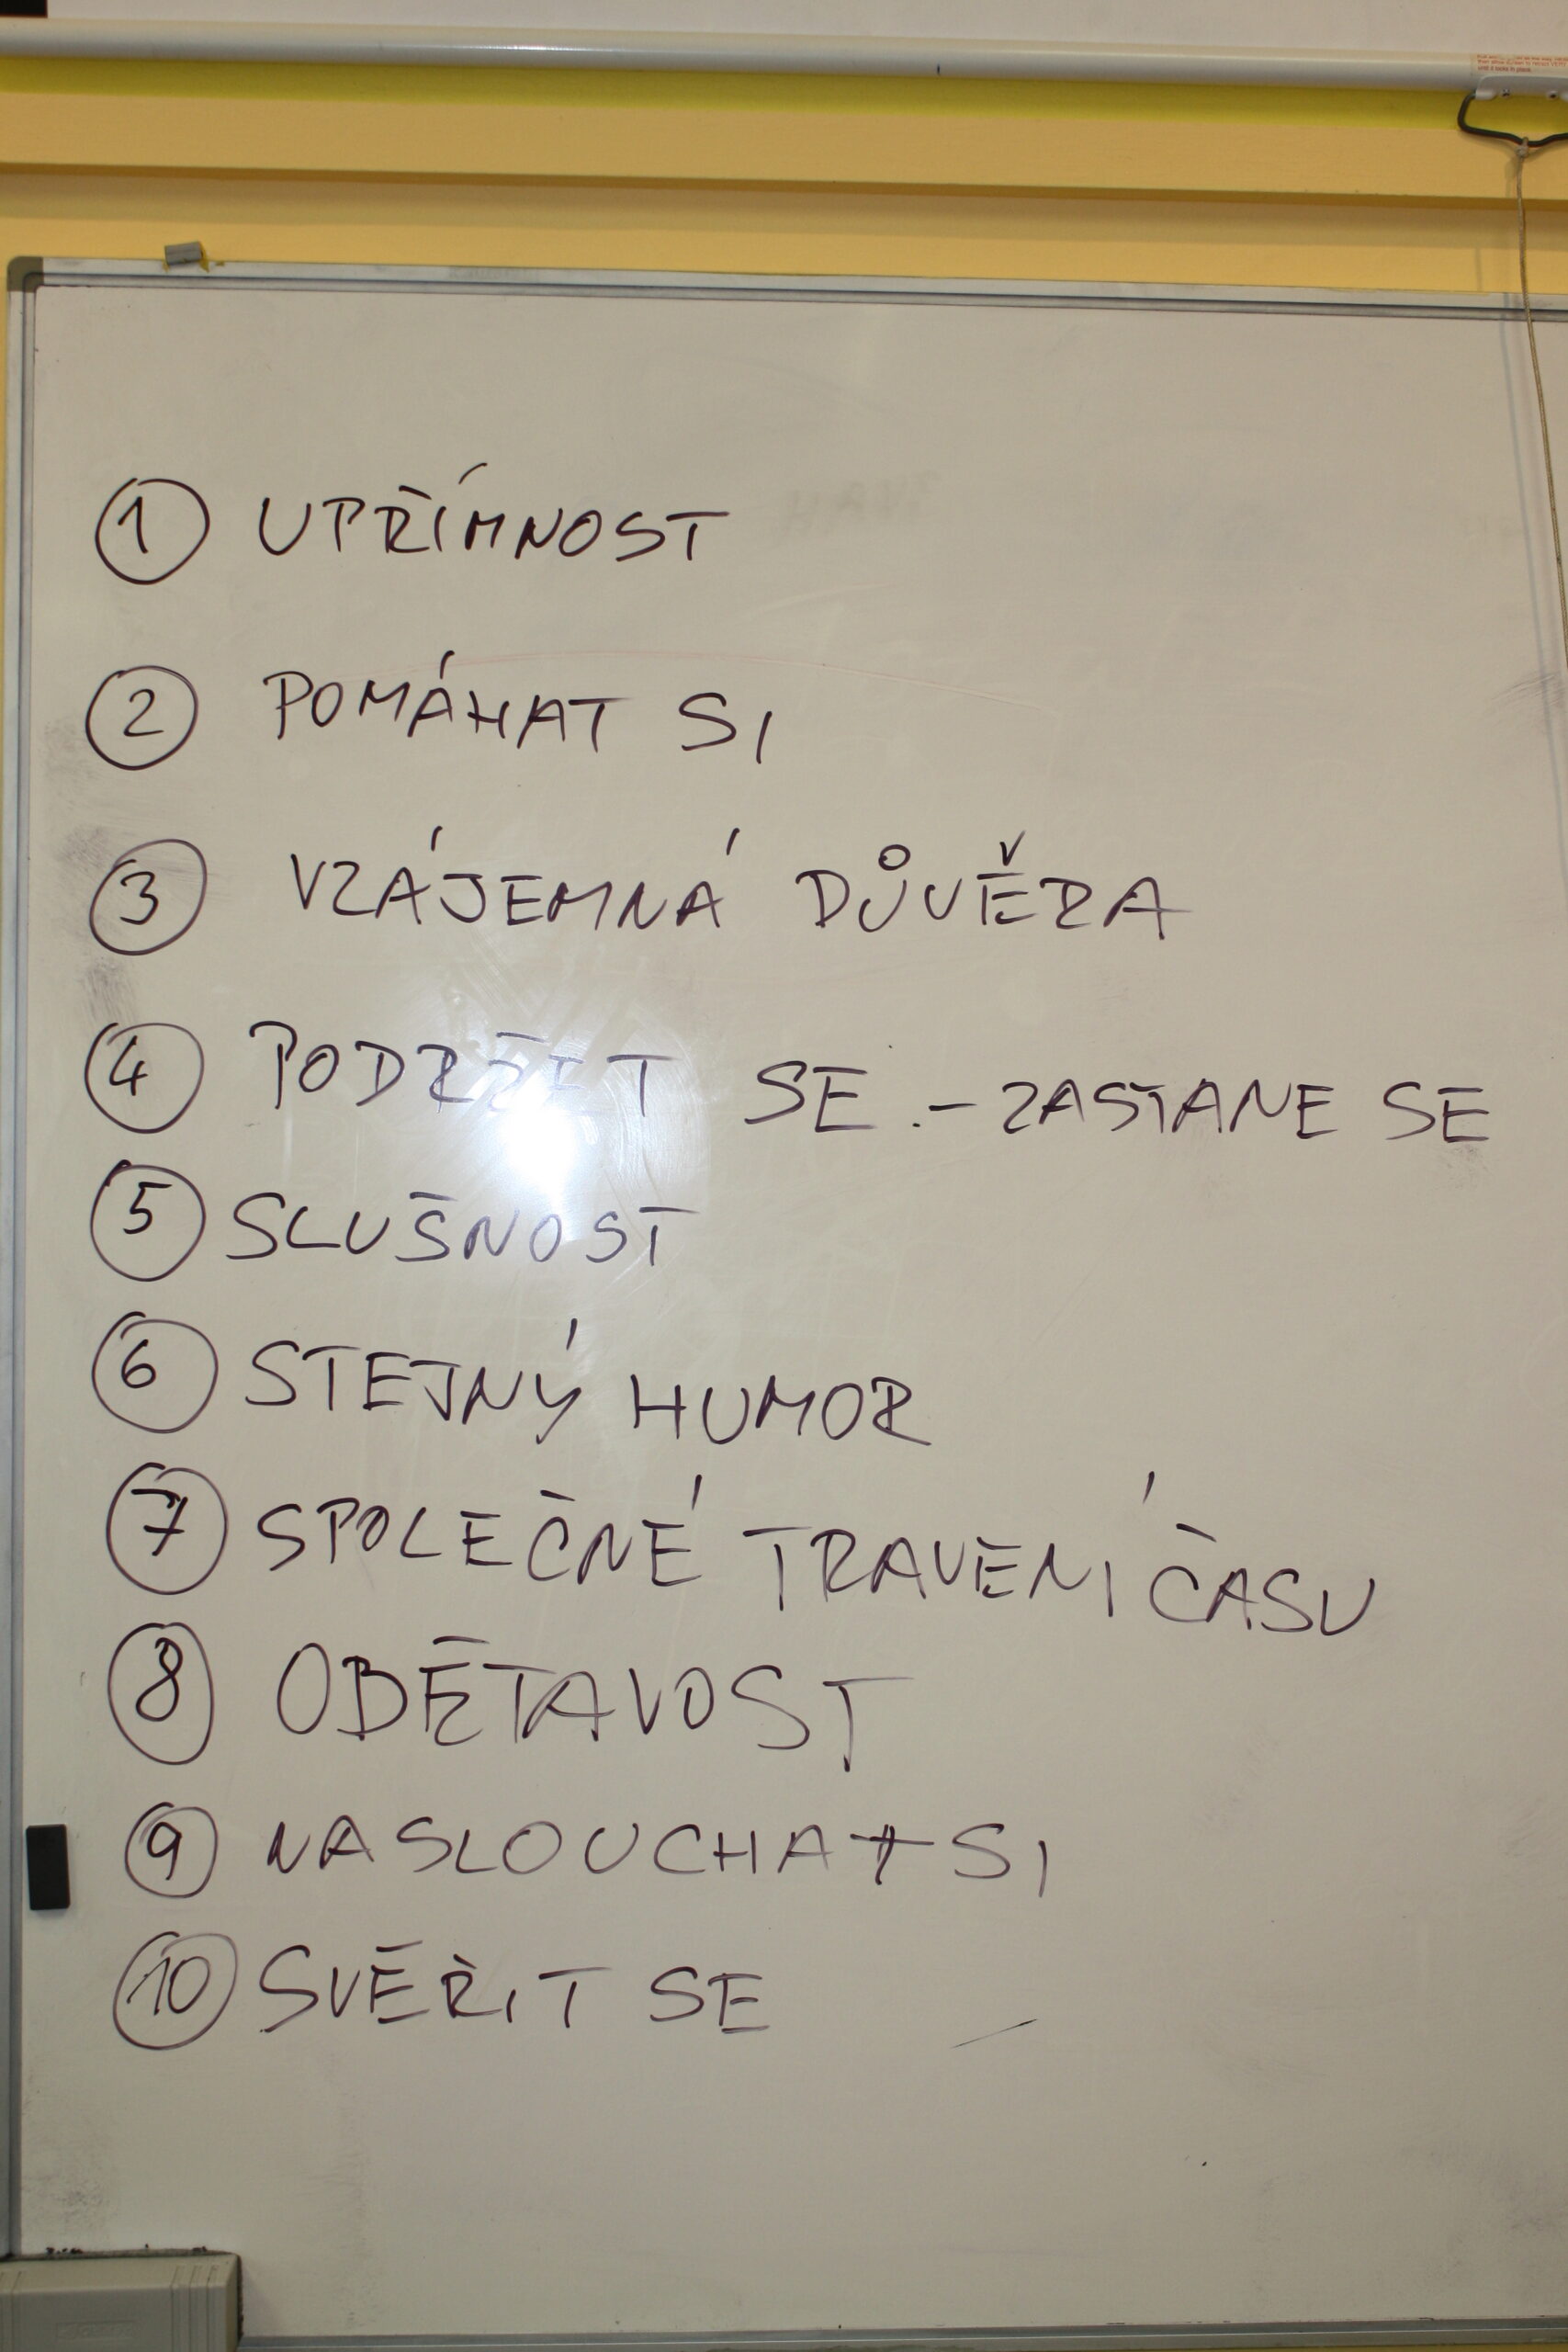 ① UPŘÍMNOST
② POMÁHAT SI
③ VZÁJEMNÁ DŮVĚRA
④ PODRŽET SE - ZASTANE SE
⑤ SLUŠNOST
⑥ STEJNÝ HUMOR
⑦ SPOLEČNÉ TRAVENÍ ČASU
⑧ OBĚTAVOST
⑨ NASLOUCHAT SI
⑩ SVĚŘIT SE